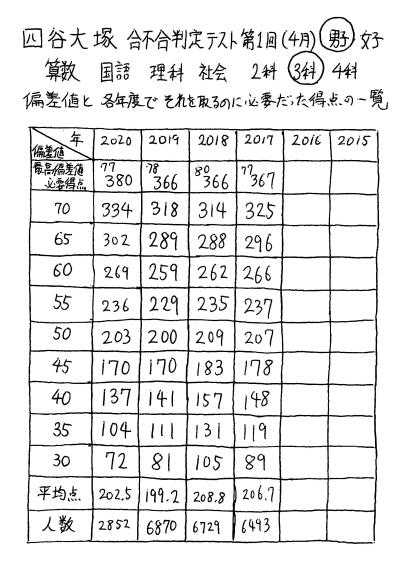 四谷大塚 合不合判定テスト第1回(4月) 男子・女子
算数 国語 理科 社会 2科 3科 4科
偏差値と各年度でそれを取るのに必要だった得点の一覧
年 偏差値 2020 2019 2018 2017 2016 2015
最高偏差値 必要得点 77 380 78 366 80 366 77 367
70 334 318 314 325
65 302 289 288 296
60 269 259 262 266
55 236 229 235 237
50 203 200 209 207
45 170 170 183 178
40 137 141 157 148
35 104 111 131 119
30 72 81 105 89
平均点 202.5 199.2 208.8 206.7
人数 2852 6870 6729 6493